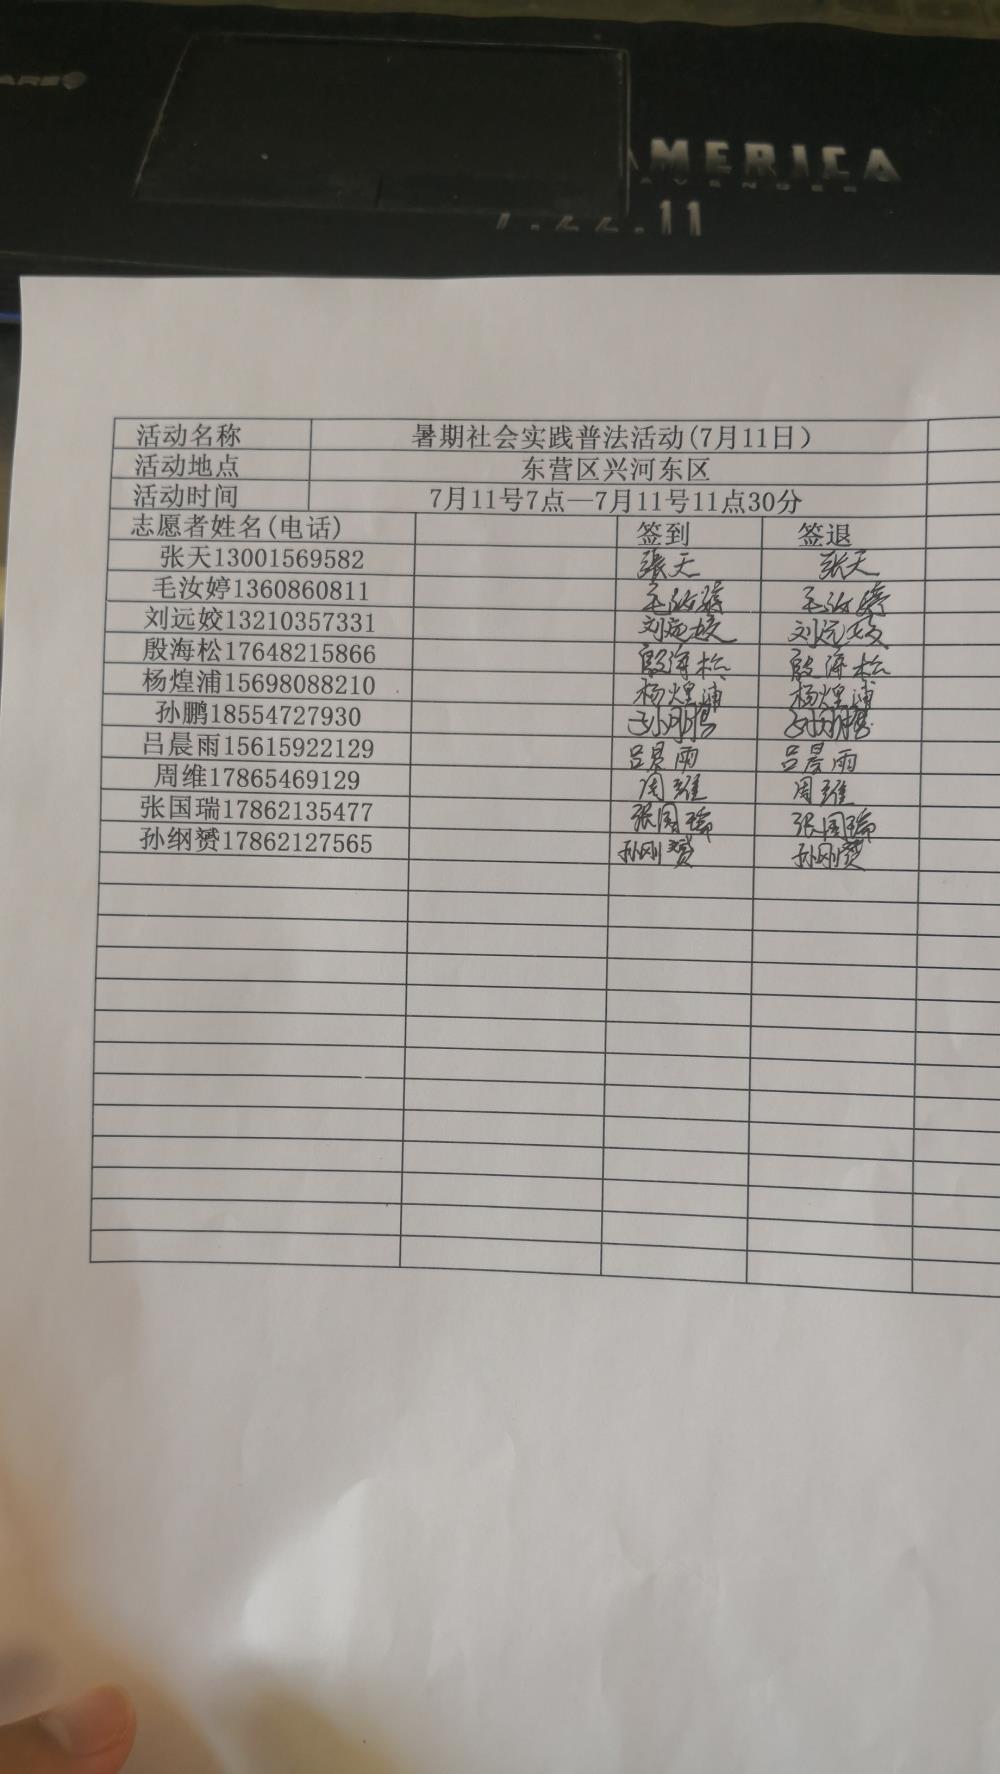 AMERICA
AVENGER
.22.11
活动名称 暑期社会实践普法活动(7月11日)
活动地点 东营区兴河东区
活动时间 7月11号7点—7月11号11点30分
志愿者姓名(电话) 签到 签退
张天13001569582 张天 张天
毛汝婷1360860811 毛汝婷 毛汝婷
刘远姣13210357331 刘远姣 刘远姣
殷海松17648215866 殷海松 殷海松
杨煌浦15698088210 杨煌浦 杨煌浦
孙鹏18554727930 孙鹏 孙鹏
吕晨雨15615922129 吕晨雨 吕晨雨
周维17865469129 周维 周维
张国瑞17862135477 张国瑞 张国瑞
孙纲赟17862127565 孙刚赟 孙刚赟